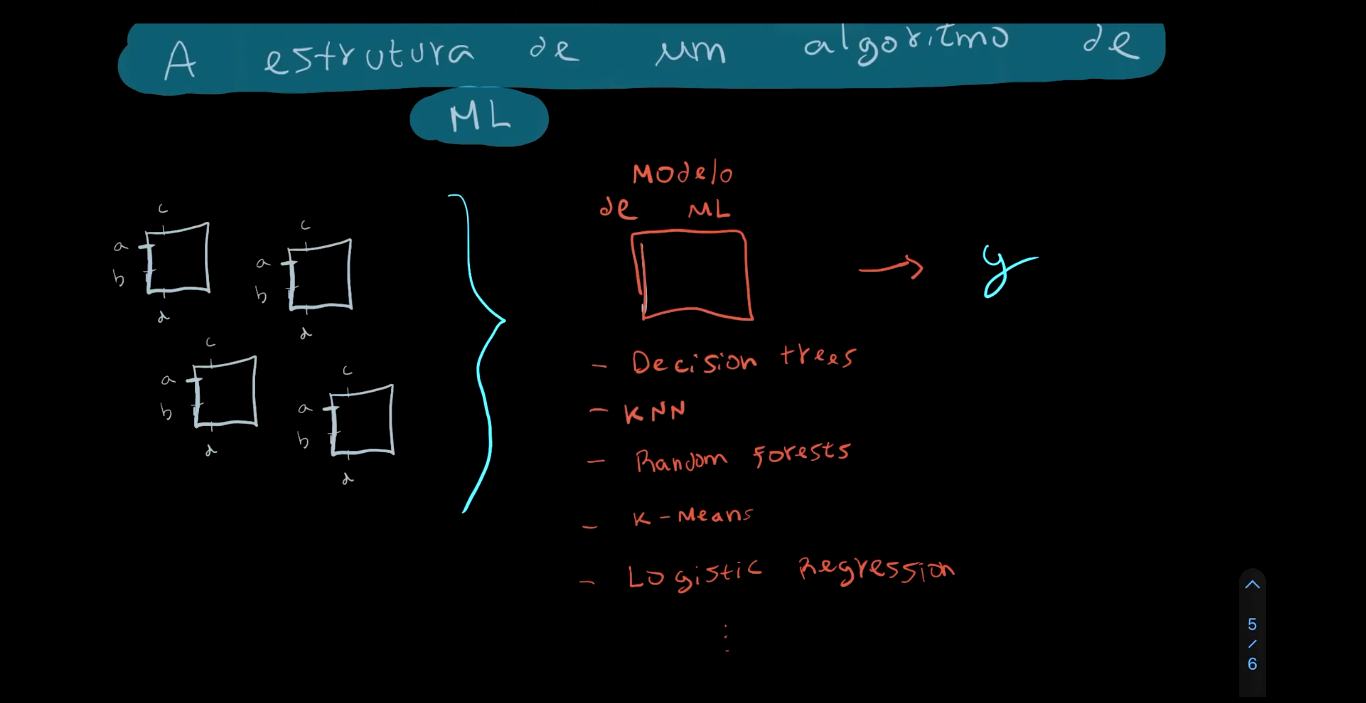 A estrutura de um algoritmo de
ML
c
a
b
d
c
a
b
d
c
a
b
d
c
a
b
d
Modelo
de ML
y
- Decision trees
- KNN
- Random forests
- K-Means
- Logistic Regression
⋮
5
/
6